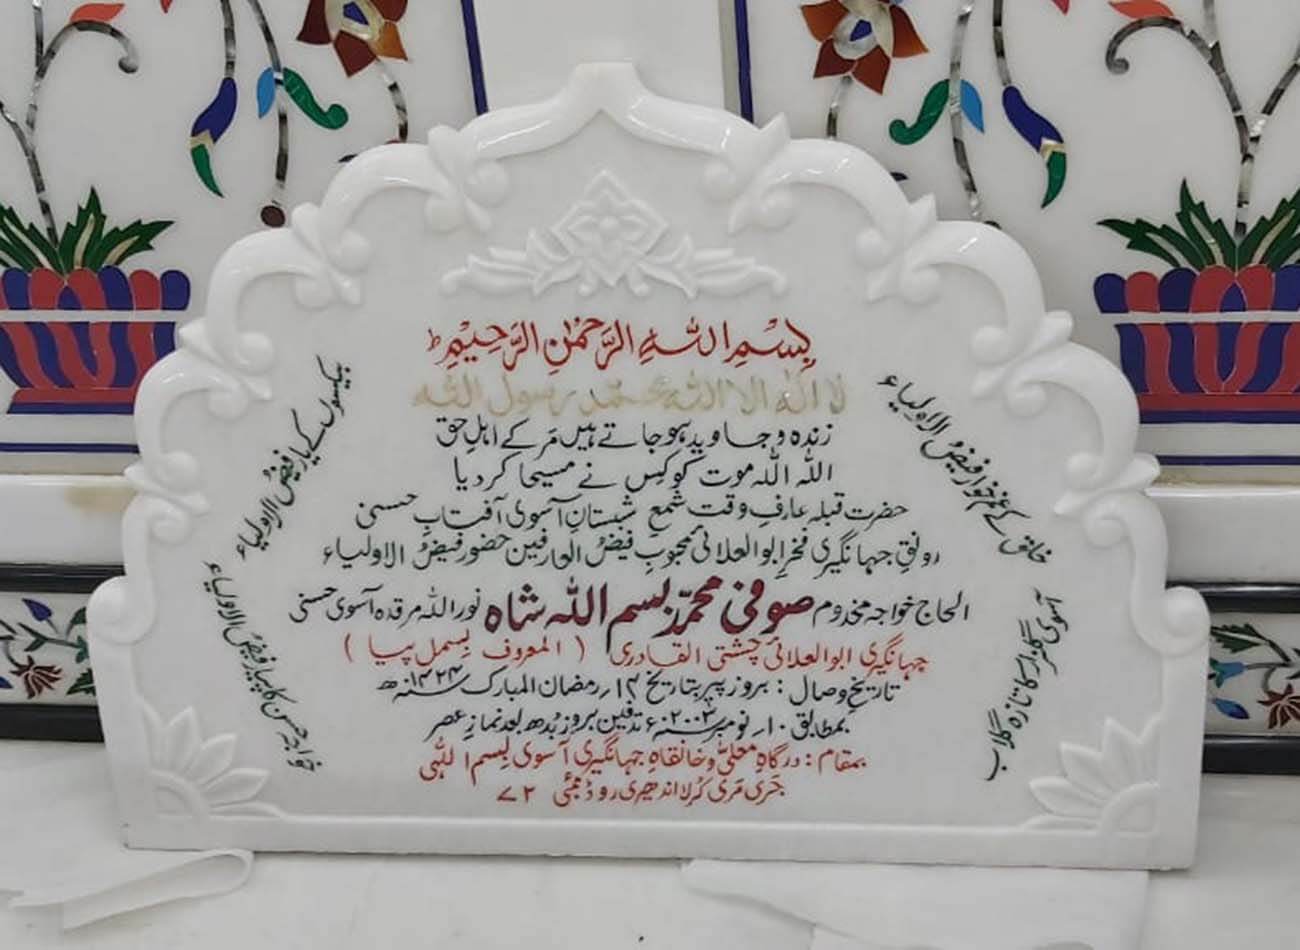 بِسْمِ اللہِ الرَّحْمٰنِ الرَّحِیْمِ ط
لا الٰہ الا اللہ محمد رسول اللہ
زندہ و جاوید ہو جاتے ہیں مَر کے اہلِ حق
اللہ اللہ موت کو کِس نے مسیحا کر دیا
حضرت قبلہ عارفِ وقت شمعِ شبستانِ آسوی آفتابِ حسنی
رونقِ جہانگیری فخرِ ابوالعلائی محبوبِ فیضُ العارفین حضور فیضُ الاولیاء
الحاج خواجہ مخدوم صوفی محمّد بسم اللہ شاہ نور اللہ مرقدہ آسوی حسنی
جہانگیری ابوالعلائی چشتی القادری ( المعروف بِسمل پیا )
تاریخِ وصال : بروز پیر بتاریخ ۱۴؍ رمضان المبارک ۱۴۲۴سنہ ھ
بمطابق ۱۰؍ نومبر سنہ ۲۰۰۳ء تدفین بروز بُدھ بعد نمازِ عصر
بمقام : درگاہِ معلیٰ و خانقاہِ جہانگیری آسوی بِسم اللّٰہی
جَری مَری کُرلا اندھیری روڈ ممبئی ۷۲
خلق کے غمخوار فیضُ الاولیاء
آسوی گلزار کا تازہ گلاب
بیکسوں کے یار فیضُ الاولیاء
خواجہ حسن کا پیار فیضُ الاولیاء